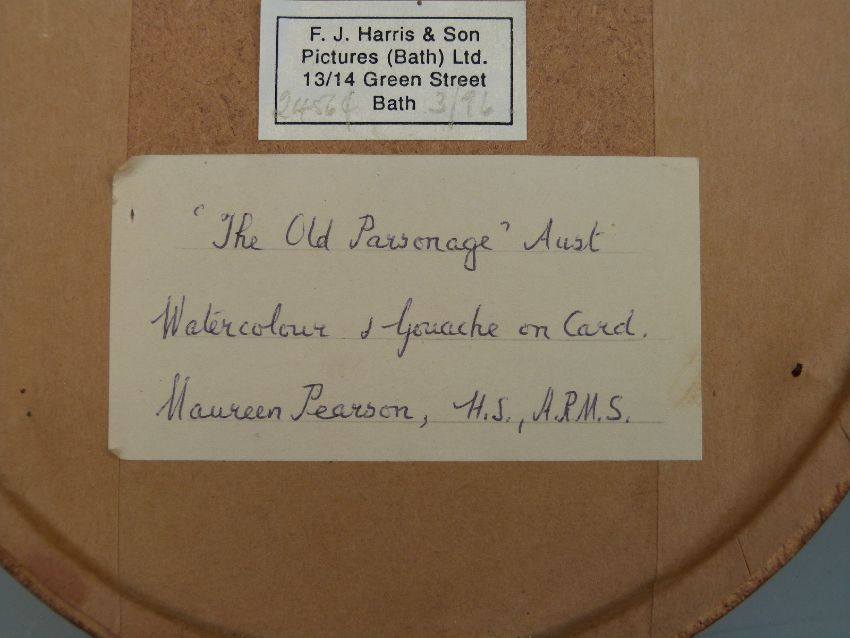 F. J. Harris & Son
Pictures (Bath) Ltd.
13/14 Green Street
Bath
2456¢ 3/96
"The Old Parsonage" Aust
Watercolour & Gouache on Card.
Maureen Pearson, H.S., A.R.M.S.